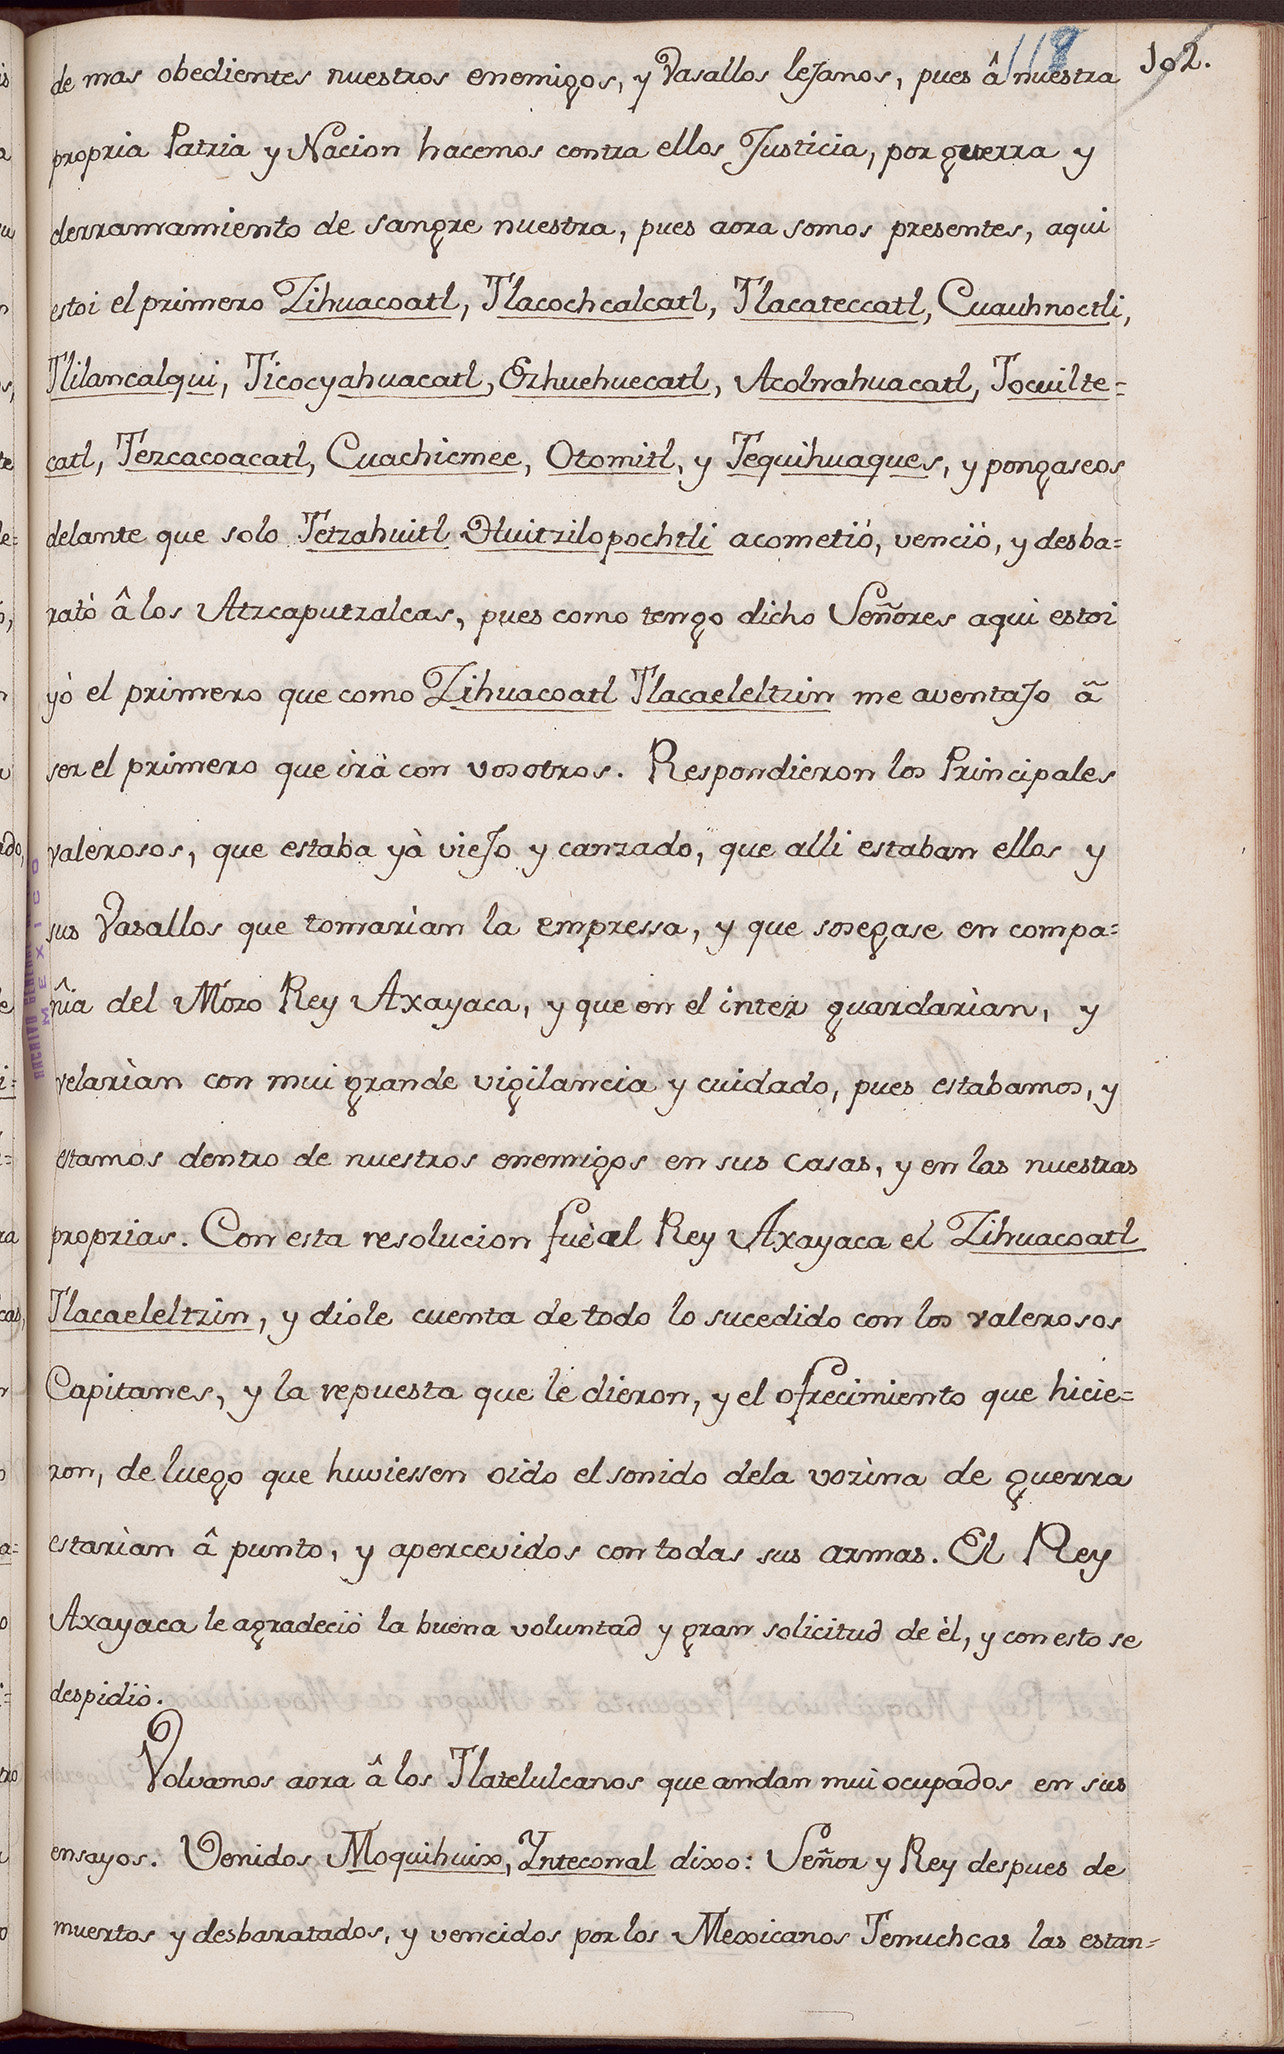 118 102.
de mas obedientes nuestros enemigos, y Vasallos leJanos, pues â nuestra
propria Patria y Nacion hacemos contra ellos Justicia, por guerra y
derramamiento de sangre nuestra, pues aora somos presentes, aqui
estoi el primero Zihuacoatl, Tlacochcalcatl, Tlacateccatl, Cuauhnoctli,
Tlilancalqui, Ticocyahuacatl, Ezhuehuecatl, Acolnahuacatl, Tocuilte=
catl, Tezcacoacatl, Cuachicmee, Otomitl, y Tequihuaques, y pongaseos
delante que solo Tetzahuitl Huitzilopochtli acometiò, venciò, y desba=
ratò â los Atzcaputzalcas, pues como tengo dicho Señores aqui estoi
yò el primero que como Zihuacoatl Tlacaeleltzin me aventaJo â
ser el primero que irà con vosotros. Respondieron los Principales
valerosos, que estaba yà vieJo y canzado, que alli estaban ellos y
sus Vasallos que tomarìan la empressa, y que sosegase en compa=
ñia del Mozo Rey Axayaca, y que en el inter guardarìan, y
velarìan con mui grande vigilancia y cuidado, pues estabamos, y
estamos dentro de nuestros enemigos en sus casas, y en las nuestras
proprias. Con esta resolucion fuè al Rey Axayaca el Zihuacoatl
Tlacaeleltzin, y diole cuenta de todo lo sucedido con los valerosos
Capitanes, y la repuesta que le dieron, y el ofrecimiento que hicie=
ron, de luego que huviessen oido el sonido dela vozina de guerra
estarìan â punto, y apercevidos con todas sus armas. El Rey
Axayaca le agradeciò la buena voluntad y gran solicitud de èl, y con esto se
despidiò.
Volvamos aora â los Tlatelulcanos que andan mui ocupados en sus
ensayos. Venidos Moquihuix, Ynteconal dixo: Señor y Rey despues de
muertos y desbaratados, y vencidos por los Mexicanos Tenuchcas las estan=
MEXICO